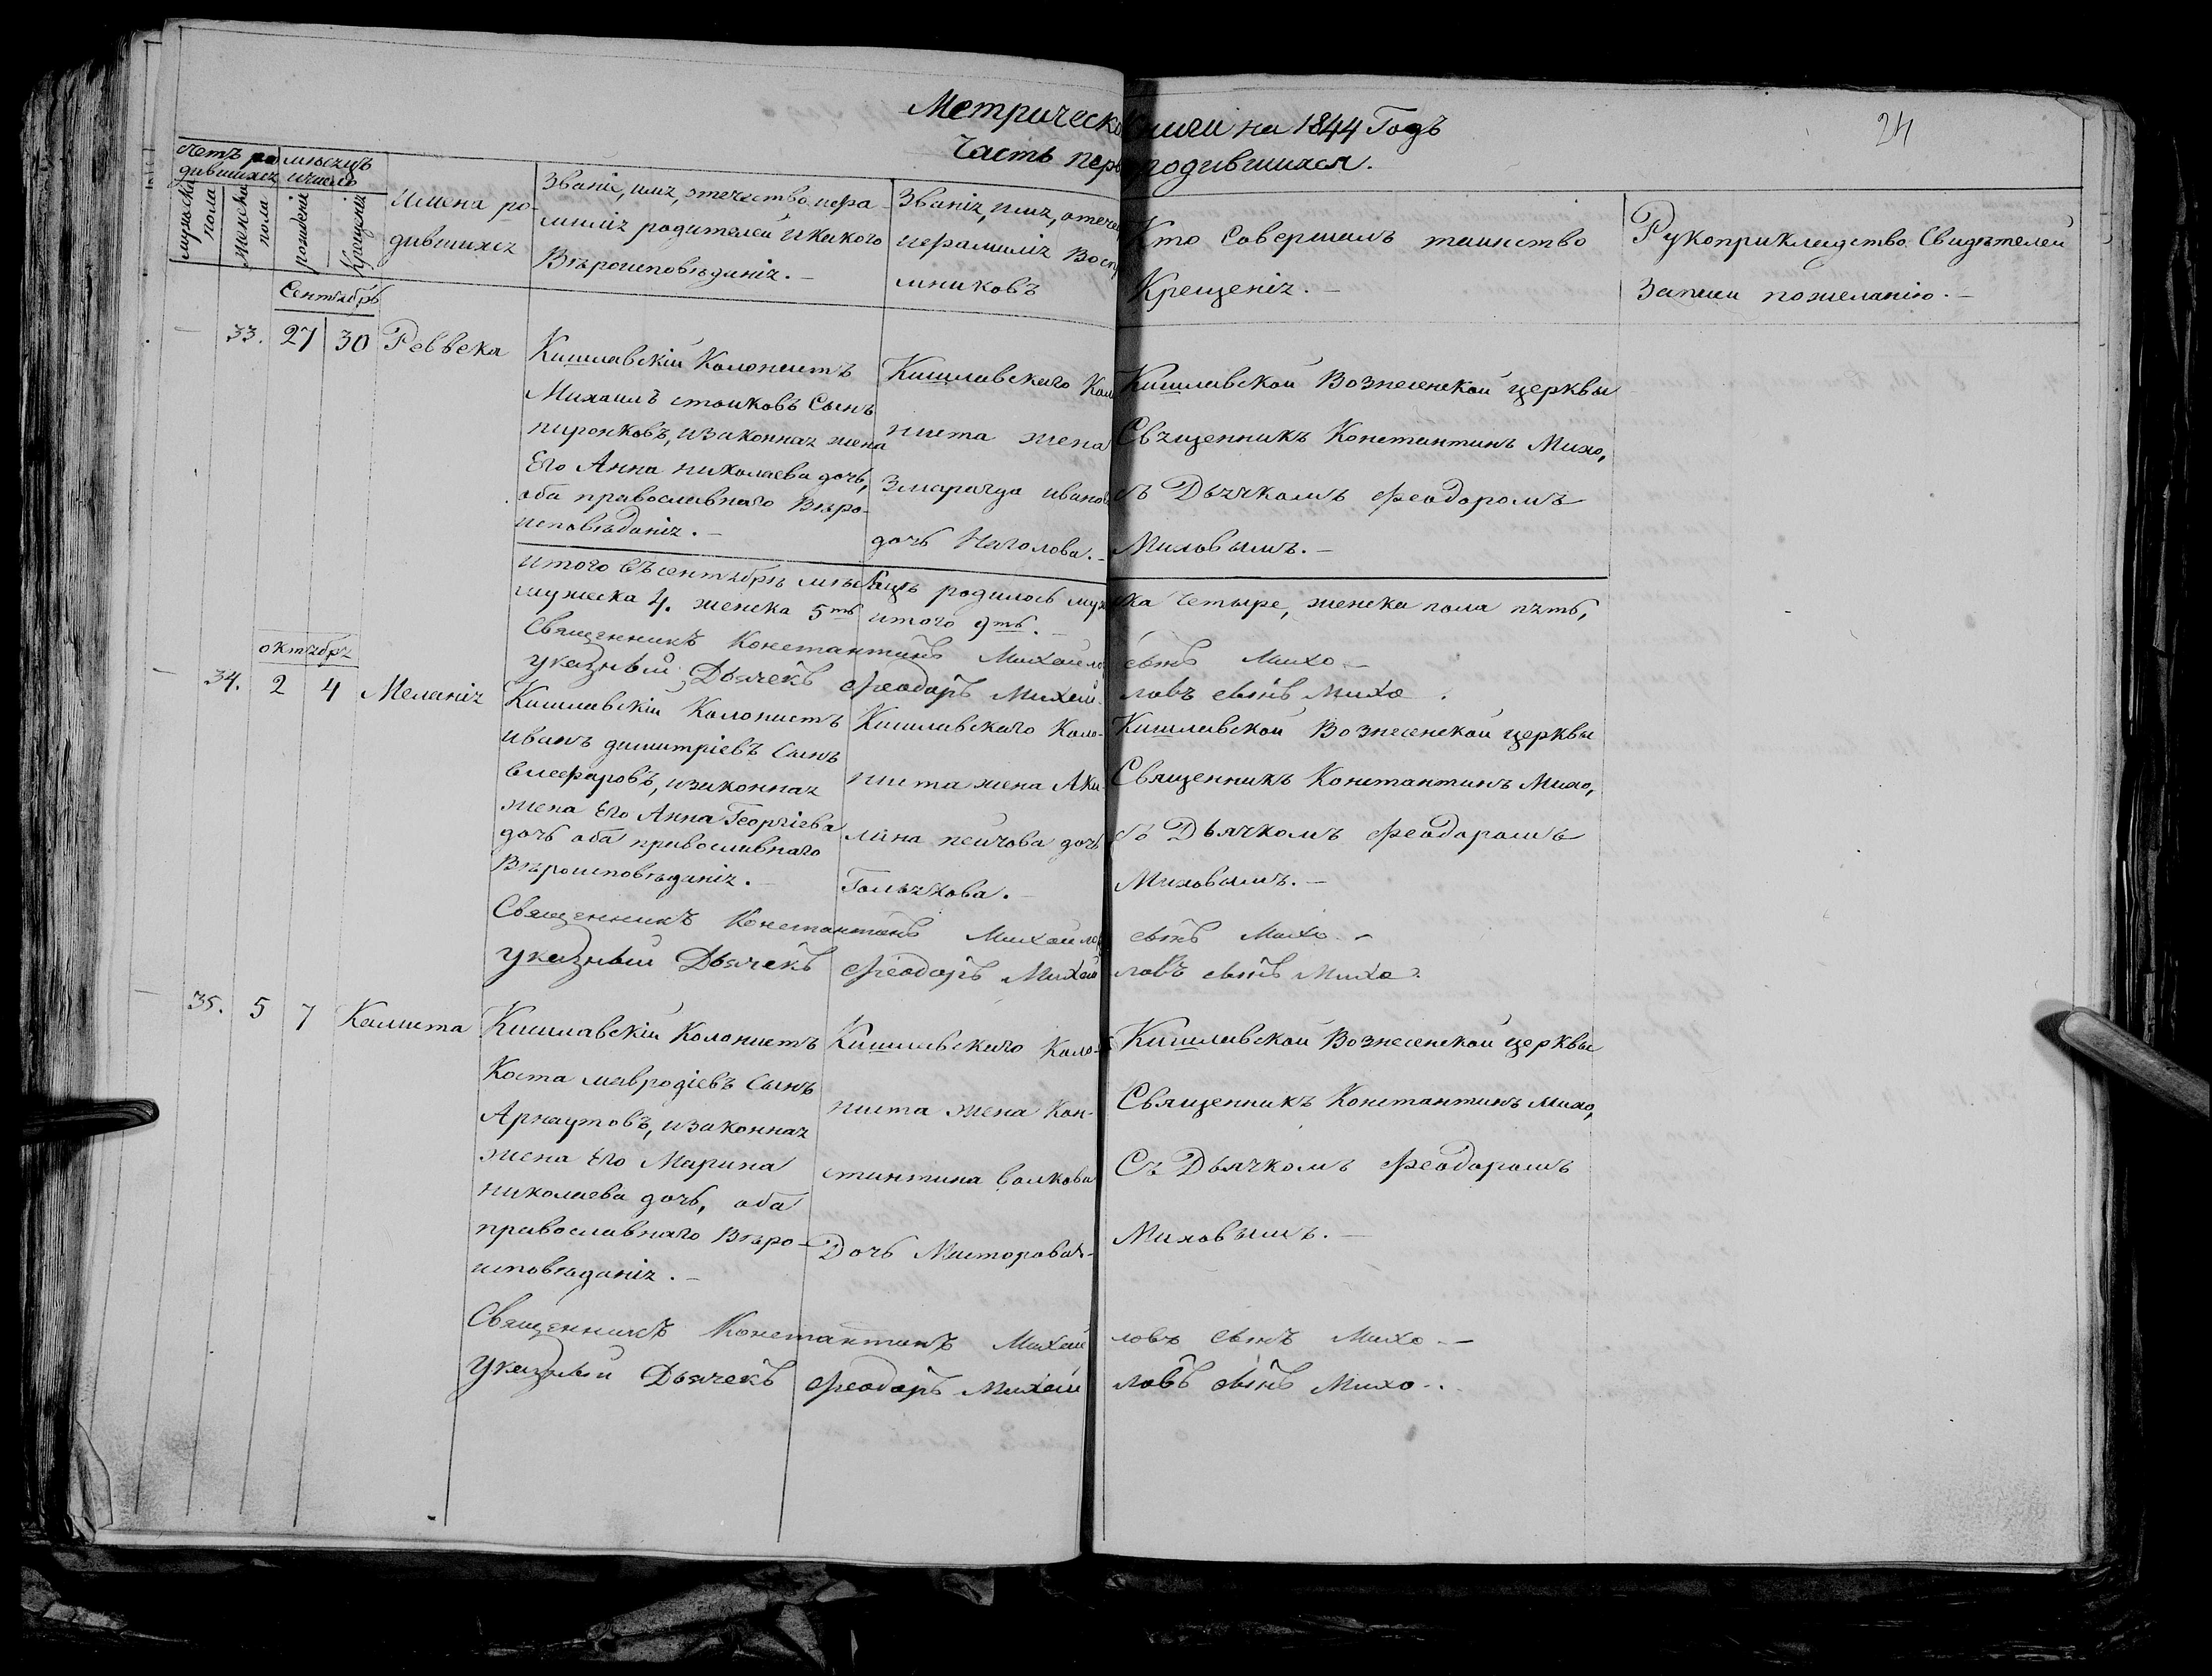 Метрическо книги на 1844 Годъ
24
Часть перв родившихся.
Счетъ ро дившихся
мѣсяцъ и число
мужеска пола
женска пола
рожденія
Крещенія
Имена ро-
дившихся
Званіе, имя, отечество, и фа-
милія родителей и какого
Вѣроисповѣданія. –
Званіе, имя, отечес
и фамилія Воспр
мниковъ
Кто Совершалъ таинство
Крещенія. –
Рукоприкладство Свидѣтелей
Записи по желанію. –
Сентябрь
33. 27 30 Реввека
Кишлавскій Колонистъ
Михаилъ стоиковъ Сынъ
пиронковъ, и законная жена
Его Анна николаева дочь,
оба православнаго Вѣро-
исповѣданія. –
Кишлавскаго Коло
ниста жена
Змарагда иванов
дочь Наголова. –
Кишлавской Вознесенской церквы
Священникъ Константинъ Михо,
съ Дьячкомъ Феодоромъ
Миховымъ. –
итого въ сентябрѣ мѣсяцѣ родилось муж ска четыре, женска пола пять,
мужеска 4. женска 5ть итого 9ть. –
Священникъ Константинъ Михаило сынъ Михо –
указный Дьячекъ Феодоръ Михаи ловъ сынъ Михо.
октябрь
34. 2 4 Меланія
Кишлавскій Колонистъ
иванъ димитріевъ Сынъ
влефаровъ, и законная
жена Его Анна Георгіева
дочь оба православнаго
Вѣроисповѣданія. –
Кишлавскаго Коло-
ниста жена Аки-
лина пейчова дочь
Голычкова. –
Кишлавской Вознесенской церквы
Священникъ Константинъ Михо,
съ Дьячкомъ Феодоромъ
Миховымъ. –
Священникъ Константинъ Михаило сынъ Михо –
указный Дьячекъ Феодоръ Михаи ловъ сынъ Михо.
35. 5 7 Калиста
Кишлавскій Колонистъ
Коста мавродіевъ Сынъ
Арнаутовъ, и законная
жена Его Марина
николаева дочь, оба
православнаго Вѣро-
исповѣданія. –
Кишлавскаго Коло-
ниста жена Кон-
стантина волкова
Дочь Мисторова. –
Кишлавской Вознесенской церквы
Священникъ Константинъ Михо,
Съ Дьячкомъ Феодоромъ
Миховымъ. –
Священникъ Константинъ Михаи ловъ сынъ Михо –
Указный Дьячекъ Феодоръ Михаи ловъ сынъ Михо.